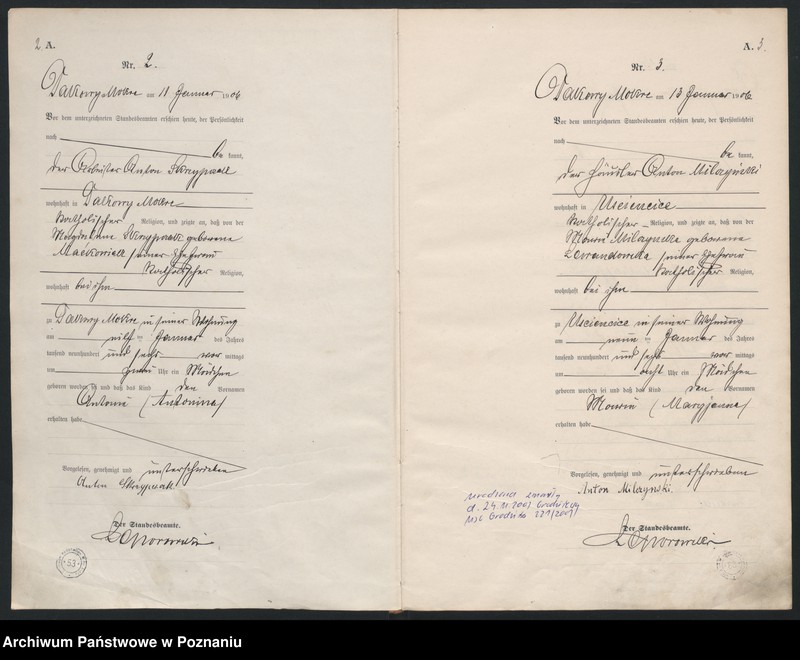 2. A.
Nr. 2.
Dakowy Mokre am 11 Januar 1906
Vor dem unterzeichneten Standesbeamten erschien heute, der Persönlichkeit
nach
be kannt,
der Arbeiter Anton Skrzypczak
wohnhaft in Dakowy Mokre
katholischer Religion, und zeigte an, daß von der
Magdalena Skrzypczak geborene
Maćkowiak seiner Ehefrau
katholischer Religion,
wohnhaft bei ihm
zu Dakowy Mokre in seiner Wohnung
am elf ten Januar des Jahres
tausend neunhundert und sechs vor mittags
um Uhr ein Mädchen
geboren worden sei und daß das Kind den Vornamen
Antonie (Antonina)
erhalten habe
Vorgelesen, genehmigt und unterschrieben
Anton Skrzypczak
Der Standesbeamte.
53
A. 3.
Nr. 3.
Dakowy Mokre am 13 Januar 1906
Vor dem unterzeichneten Standesbeamten erschien heute, der Persönlichkeit
nach
be kannt,
der Häusler Anton Milczyński
wohnhaft in Usciencice
katholischer Religion, und zeigte an, daß von der
Marie Milczynska geborene
Lewandowska seiner Ehefrau
katholischer Religion,
wohnhaft bei ihm
zu Usciencice in seiner Wohnung
am neun ten Januar des Jahres
tausend neunhundert und sechs vor mittags
um acht Uhr ein Mädchen
geboren worden sei und daß das Kind den Vornamen
Marie (Maryjanna)
erhalten habe
Vorgelesen, genehmigt und unterschrieben
Anton Milczynski.
d. 24.11.2001
USC Grodzisk 221/2001
Der Standesbeamte.
Archiwum Państwowe w Poznaniu